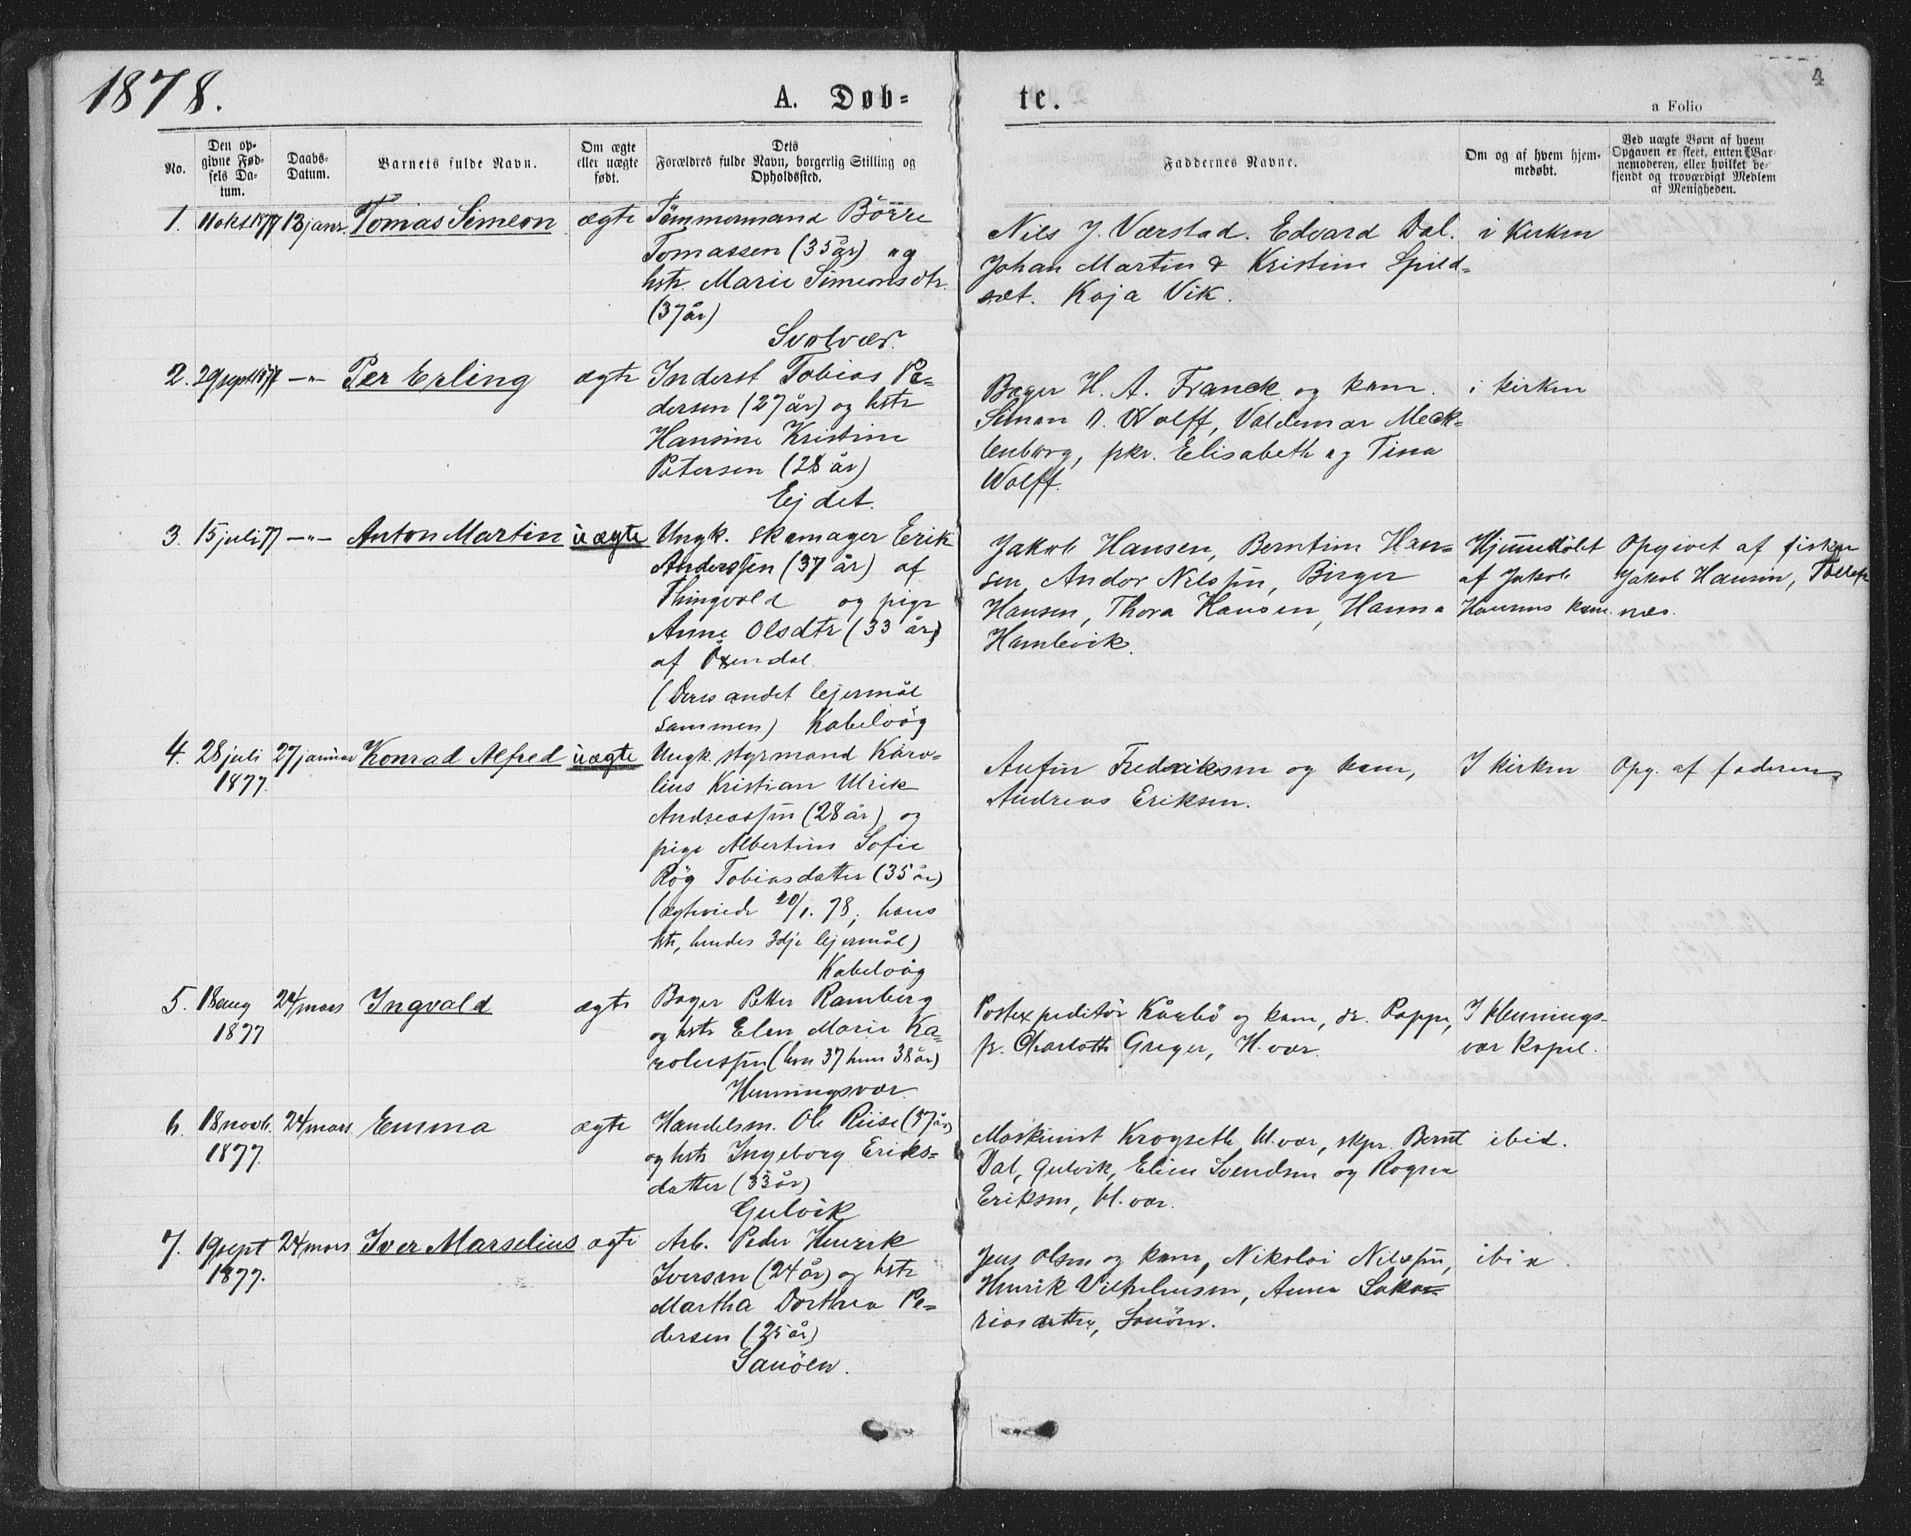 1878.
A. Døb-
te.
4
a Folio
No.
Den op-
givne Fød-
sels Da-
tum.
Daabs-
Datum.
Barnets fulde Navn.
Om ægte
eller uægte
født.
Dets
Forældres fulde Navn, borgerlig Stilling og
Opholdssted.
Faddernes Navne.
Om og af hvem hjem-
medøbt.
Ved uægte Børn af hvem
Opgaven er skeet, enten Bar-
nemoderen, eller hvilket be-
kjendt og troværdigt Medlem
af Menigheden.
1. 11 okt 1877 13 janr. Tomas Simeon ægte Tömmermand Börre
Tomassen (35 år) og
hstr. Marie Simeonsdtr.
(37 år)
Svolvær.
Nils J. Værstad. Edvard Dal.
Johan Martin & Kristine Spild-
set. Kaja Vik.
i kirken
2. 29 sept 1877 -"- Per Erling ægte Inderst Tobias Pe-
dersen (27 år) og hstr
Hansine Kristine
Petersen (28 år)
Ejdet.
Bager H. A. Franck og kone.
Simon D. Wolff, Valdemar Meck-
lenborg, pkr. Elisabeth og Tina
Wolff.
i kirken
3. 15 juli 77 -"- Anton Martin uægte Ungk. skomager Erik
Anderssen (37 år) af
Thingvold og pige
Anne Olsdtr (33 år)
af Öxendal.
(Deres andet lejermål
sammen) Kabelvåg
Jakob Hansen, Berntine Han-
sen, Andor Nilssen, Birger
Hansen, Thora Hansen, Hanna
Hamlevik.
Hjemmedøbt
af Jakob
Hansens kone.
Opgivet af fisker
Jakob Hansen,
næs.
4. 28 juli
1877.
27 januar Konrad Alfred uægte Ungk. styrmand Karo-
lius Kristian Ulrik
Andreassen (28 år) og
pige Albertine Sofie
Røg Tobiasdatter (35 år)
(ægteviede 20/1. 78, hans
1ste, hendes 3dje lejermål)
Kabelvåg
Anfin Fredriksen og kone,
Andreas Eriksen.
I kirken
Opg. af faderen
5. 18 aug
1877
24 mars Ingvald ægte Bager Petter Ramberg
og hstr Elen Marie Ka-
rolussen (han 37 hun 38 år)
Henningsvær.
Postexpeditör Kårbö og kone, dr. Pappe,
fr. Charlotte Greger, H.vær.
I Hennings-
vær kapel.
6. 18 novb.
1877.
24 mars. Emma ægte Handelsm. Ole Riise (37 år)
og hstr Ingeborg Eriks-
datter (33 år)
Gulvik
Maskinist Krogseth H.vær, skpr. Bernt
Dal, Gulvik, Eline Svendsen og Ragna
Eriksen, H.vær.
ibid.
7. 19 sept
1877.
24 mars Iver Marselius ægte Arb. Peder Henrik
Iversen (24 år) og hstr
Martha Dorthea Pe-
dersen (25 år)
Sanöen.
Jens Olsen og kone, Nikolai Nilssen,
Henrik Vilhelmsen, Anna Saka-
riasdatter, Sanöen.
ibid.